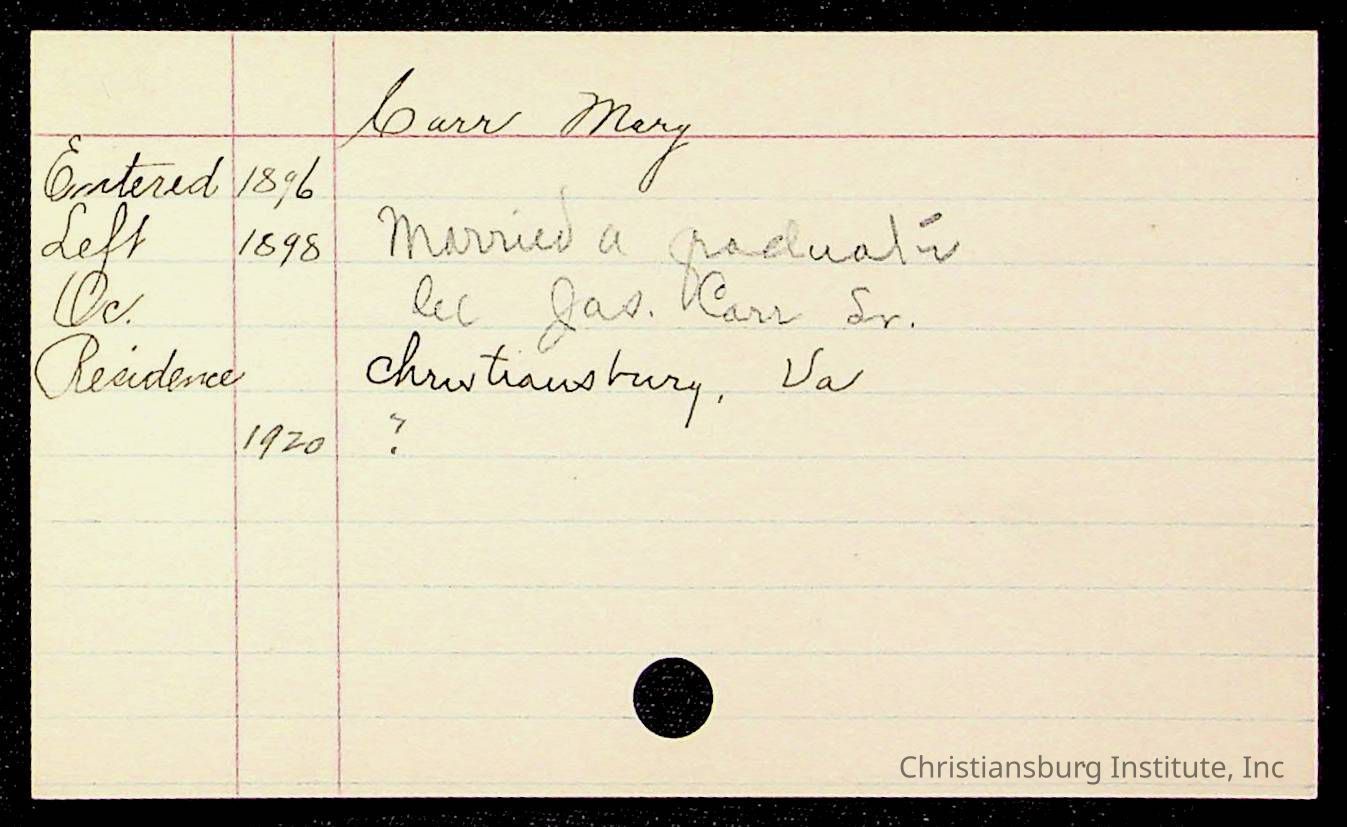 Carr Mary
Entered 1896
Left 1898 Married a graduate
Oc. See Jas. Carr Sr.
Residence Christiansburg, Va
1920 ?
Christiansburg Institute, Inc